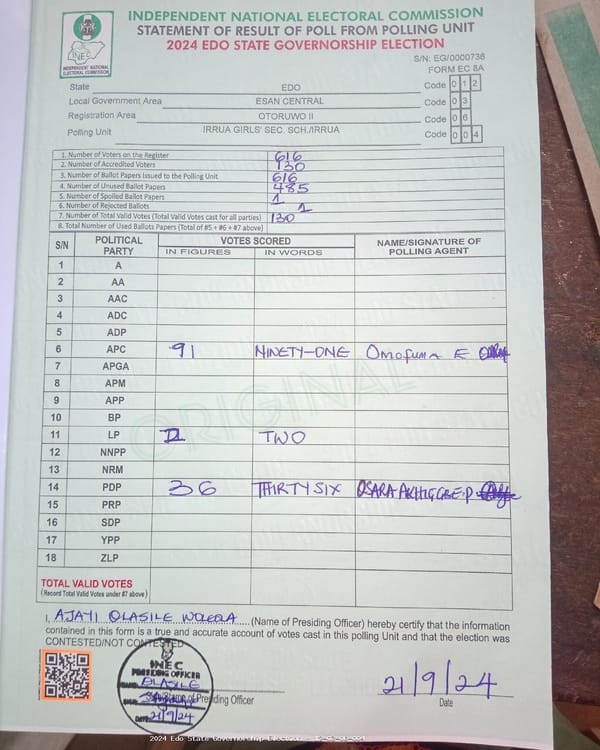 INDEPENDENT NATIONAL ELECTORAL COMMISSION
STATEMENT OF RESULT OF POLL FROM POLLING UNIT
2024 EDO STATE GOVERNORSHIP ELECTION
INEC
INDEPENDENT NATIONAL ELECTORAL COMMISSION
S/N: EG/0000736
FORM EC 8A
State EDO Code 0 1 2
Local Government Area ESAN CENTRAL Code 0 3
Registration Area OTORUWO II Code 0 6
Polling Unit IRRUA GIRLS' SEC. SCH./IRRUA Code 0 0 4
1. Number of Voters on the Register 616
2. Number of Accredited Voters 130
3. Number of Ballot Papers Issued to the Polling Unit 616
4. Number of Unused Ballot Papers 485
5. Number of Spoiled Ballot Papers 1
6. Number of Rejected Ballots 1
7. Number of Total Valid Votes (Total Valid Votes cast for all parties) 130
8. Total Number of Used Ballots Papers (Total of #5 + #6 + #7 above)
S/N POLITICAL PARTY VOTES SCORED NAME/SIGNATURE OF POLLING AGENT
IN FIGURES IN WORDS
1 A
2 AA
3 AAC
4 ADC
5 ADP
6 APC 91 NINETY-ONE Omofuma E
7 APGA
8 APM
9 APP
10 BP
11 LP TWO
12 NNPP
13 NRM
14 PDP 36 THIRTY SIX
15 PRP
16 SDP
17 YPP
18 ZLP
ORIGINAL
TOTAL VALID VOTES
(Record Total Valid Votes under #7 above)
I, AJAYI OLASILE (Name of Presiding Officer) hereby certify that the information
contained in this form is a true and accurate account of votes cast in this polling Unit and that the election was
CONTESTED/NOT CONTESTED
INEC
PRESIDING OFFICER
OLASILE
DATE: 21/9/24
Presiding Officer
21/9/24
Date